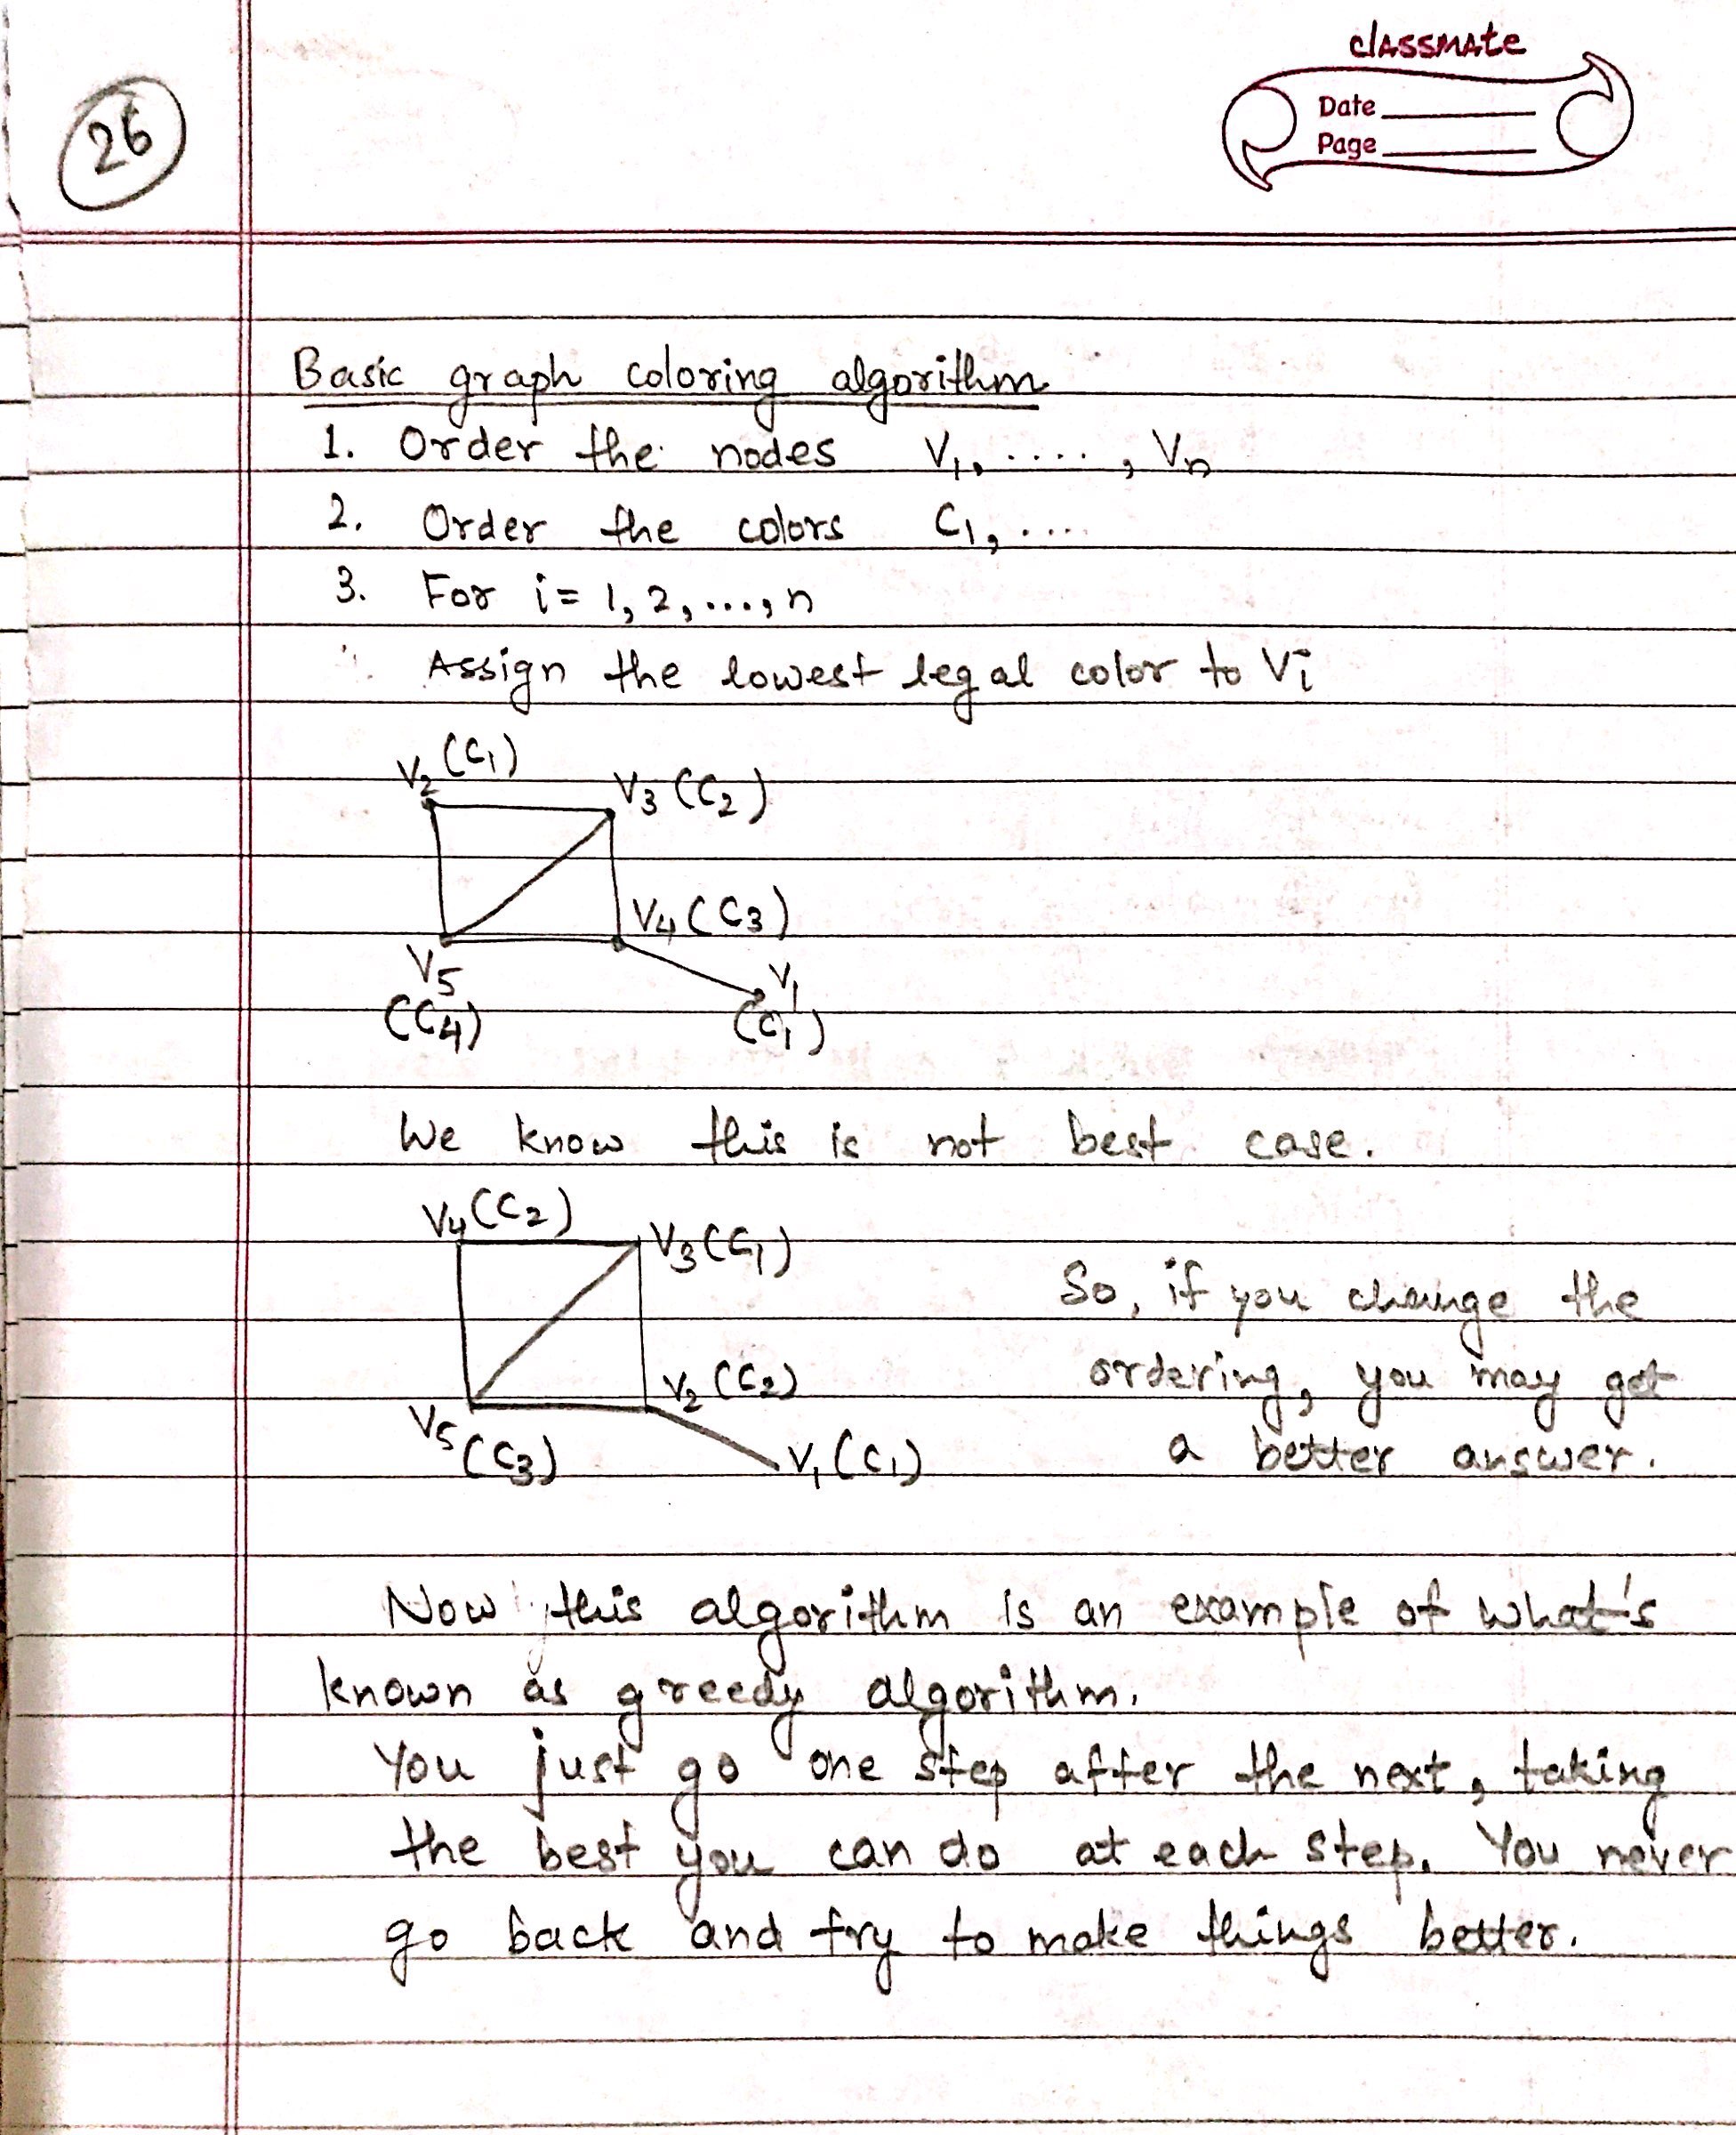 classmate
Date
Page
26
Basic graph coloring algorithm
1. Order the nodes V₁, ...., Vₙ
2. Order the colors C₁, ....
3. For i = 1, 2, ..., n
Assign the lowest legal color to Vi
V₂ (C₁)
V₃ (C₂)
V₄ (C₃)
V₅
(C₄)
V₁
(C₁)
We know this is not best case.
V₄ (C₂)
V₃ (C₁)
So, if you change the
ordering, you may get
V₂ (C₂)
V₅ (C₃)
V₁ (C₁)
a better answer.
Now this algorithm is an example of what's
known as greedy algorithm.
You just go one step after the next, taking
the best you can do at each step. You never
go back and try to make things better.